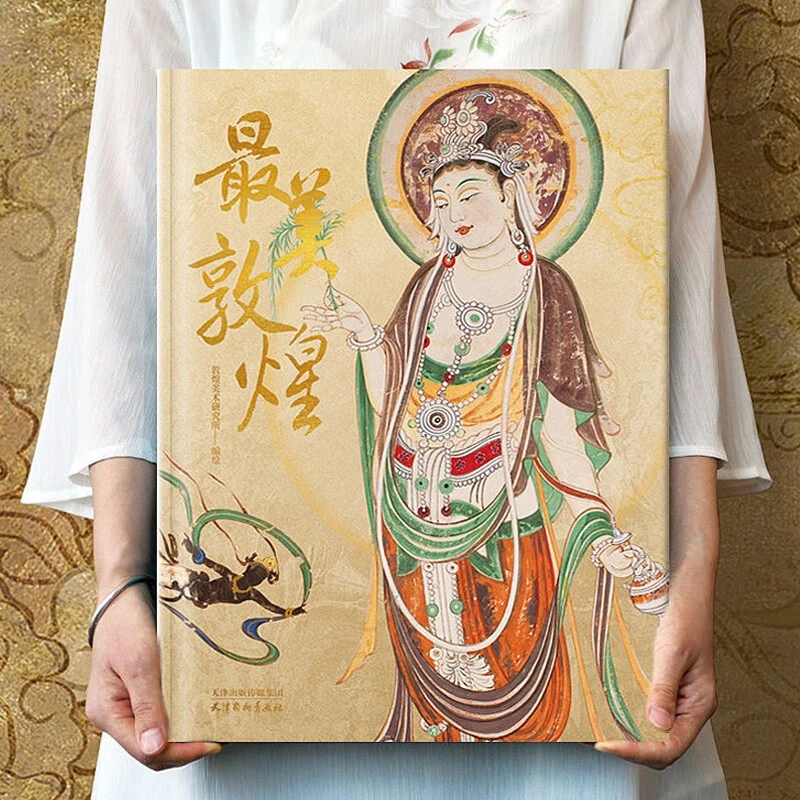 最美敦煌
敦煌美术研究所一编绘
天津出版传媒集团
天津杨柳青画社